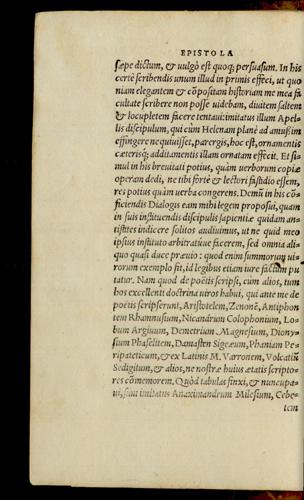 EPISTOLA
sæpe dictum, & uulgò est quoq; persuasum. In his
certè scribendis unum illud in primis effeci, ut quo
niam elegantem & cõpositam historiam me mea fa
cultate scribere non posse uidebam, diuitem saltem
& locupletem facere tentaui: imitatus illum Apel-
lis discipulum, qui cùm Helenam planè ad amußim
effingere nequiuisset, parergis, hoc est, ornamentis
cæterisq; additamentis illam ornatam effecit. Et si-
mul in his breuitati potius, quàm uerborum copiæ
operam dedi, ne tibi fortè & lectori fastidio essem,
res potius quàm uerba congerens. Demũ in his cõ-
ficiendis Dialogis eam mihi legem proposui, quam
in suis instituendis discipulis sapientiæ quidam an-
tistites indicere solitos audiuimus, ut ne quid meo
ipsius instituto arbitratúue facerem, sed omnia ali-
quo quasi duce præuio: quod enim summorum ui-
rorum exemplo fit, id legibus etiam iure factum pu
tatur. Nam quod de poëtis scripsi, cùm alios, tum
hos excellenti doctrina uiros habui, qui ante me de
poëtis scripserunt, Aristotelem, Zenonē, Antiphon
tem Rhamnusium, Nicandrum Colophonium, Lo-
bum Argiuum, Demetrium Magnesium, Diony-
sium Phaselitem, Damasten Sigæum, Phaniam Pe-
ripateticum, & ex Latinis M. Varronem, Volcatiũ
Sedigitum, & alios, ne nostræ huius ætatis scripto-
res cõmemorem. Quòd tabulas finxi, & nuncupa-
ui, sum imitatus Anaximandrum Milesium, Cebe-
tem